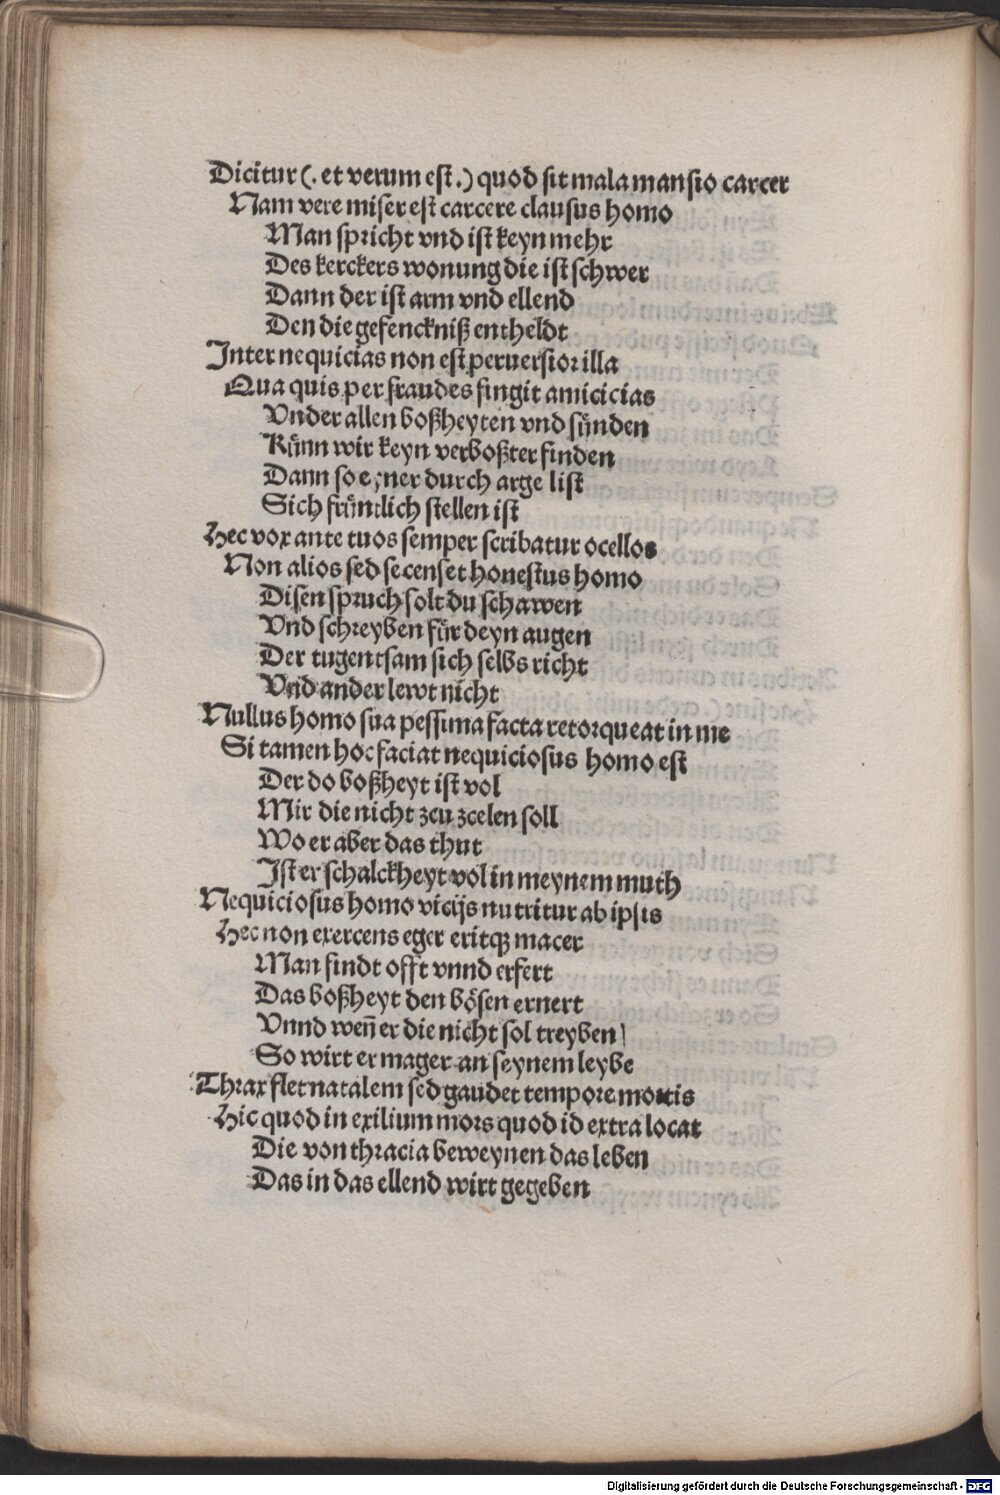 Dicitur (. et verum est .) quod sit mala mansio carcer
Nam vere miser est carcere clausus homo
Man spricht vnd ist keyn mehr
Des kerckers wonung die ist schwer
Dann der ist arm vnd ellend
Den die gefenckniß entheldt
Inter nequicias non est peruersior illa
Qua quis per fraudes fingit amicicias
Vnder allen boßheyten vnd sünden
Künn wir keyn verboßter finden
Dann so eyner durch arge list
Sich früntlich stellen ist
Hec vox ante tuos semper scribatur ocellos
Non alios sed se censet honestus homo
Disen spruch solt du schawen
Vnd schreyben für deyn augen
Der tugentsam sich selbs richt
Vnd ander lewt nicht
Nullus homo sua pessima facta retorqueat in me
Si tamen hoc faciat nequiciosus homo est
Der do boßheyt ist vol
Mir die nicht zcu zcelen soll
Wo er aber das thut
Ist er schalckheyt vol in meynem muth
Nequiciosus homo vicijs nutritur ab ipsis
Hec non exercens eger eritqꝫ macer
Man findt offt vnnd erfert
Das boßheyt den bösen ernert
Vnnd weñ er die nicht sol treyben
So wirt er mager an seynem leybe
Thrax flet natalem sed gaudet tempore mortis
Hic quod in exilium mors quod id extra locat
Die von thracia beweynen das leben
Das in das ellend wirt gegeben
Digitalisierung gefördert durch die Deutsche Forschungsgemeinschaft - DFG